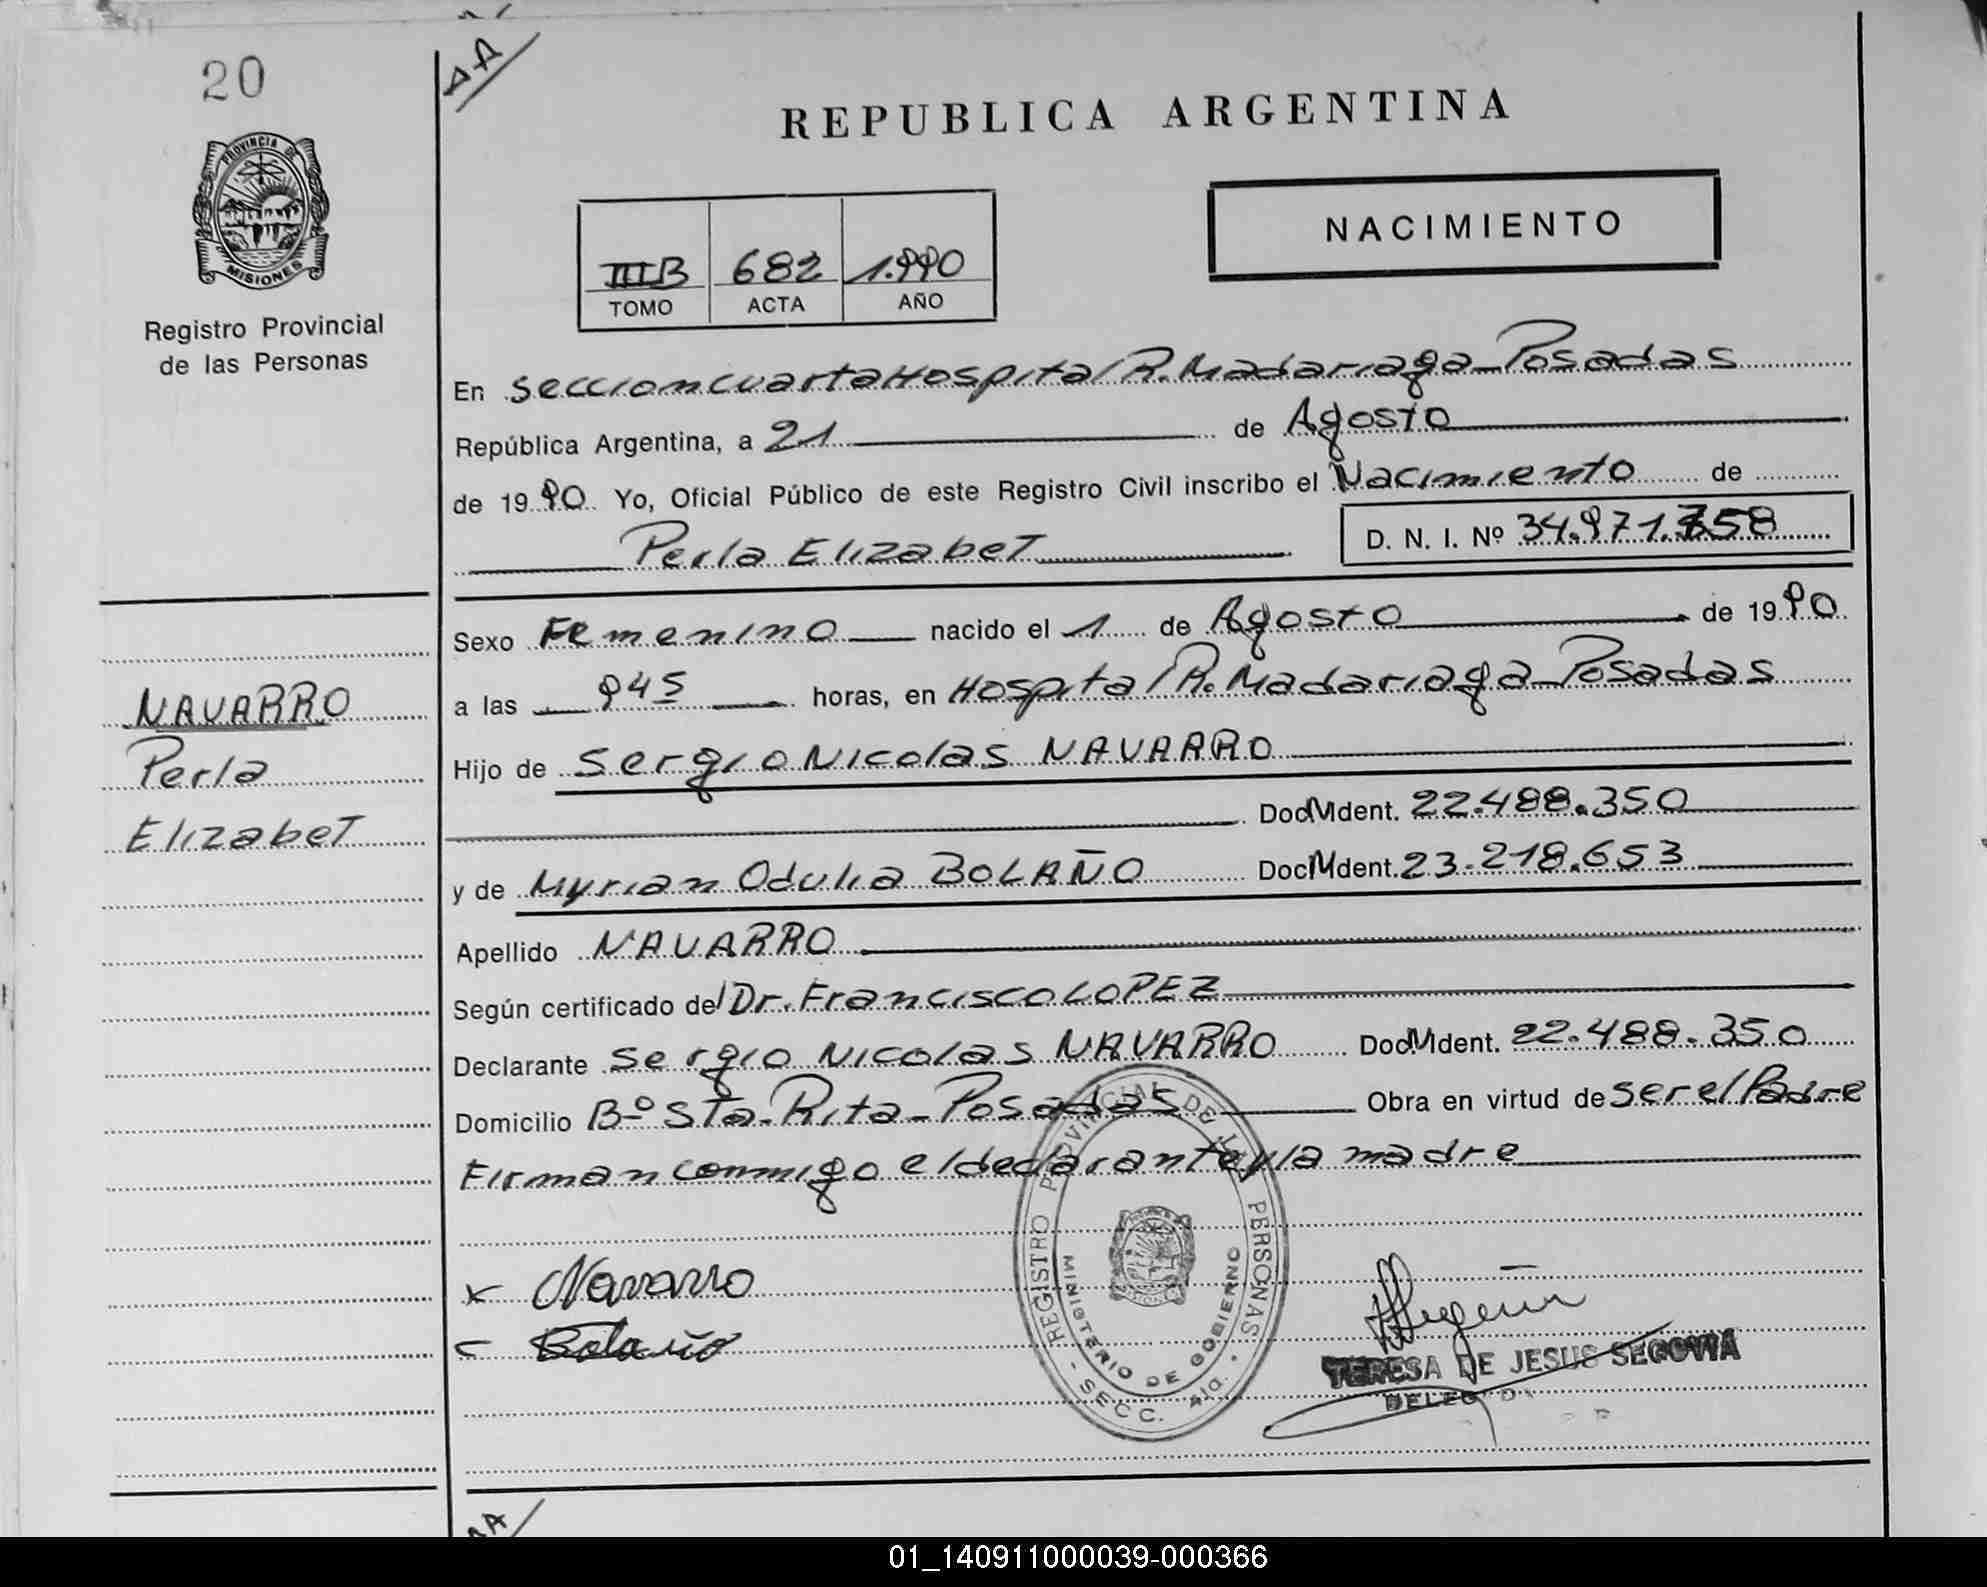 20
AA
REPUBLICA ARGENTINA
PROVINCIA DE
MISIONES
Registro Provincial
de las Personas
NACIMIENTO
IIIB 682 1.990
TOMO ACTA AÑO
En Seccion Cuarta Hospital R. Madariaga - Posadas
República Argentina, a 21 de Agosto
de 19 90 Yo, Oficial Público de este Registro Civil inscribo el Nacimiento de
Perla Elizabet D. N. I. Nº 34.971.758
Sexo Femenino nacido el 1 de Agosto de 19 90
a las 945 horas, en Hospital R. Madariaga - Posadas
Hijo de Sergio Nicolas NAVARRO
Doc M Ident. 22.488.350
y de Myrian Odulia BOLAÑO Doc M Ident. 23.218.653
Apellido NAVARRO
Según certificado del Dr. Francisco LOPEZ
Declarante Sergio Nicolas NAVARRO Doc M Ident. 22.488.350
Domicilio Bº Sta. Rita - Posadas Obra en virtud de ser el Padre
Firman conmigo el declarante y la madre
NAVARRO
Perla
Elizabet
x Navarro
Bolaño
REGISTRO PROVINCIAL DE LAS PERSONAS
MINISTERIO DE GOBIERNO
SECC. 4ta.
TERESA DE JESUS SEGOVIA
AA
01_140911000039-000366